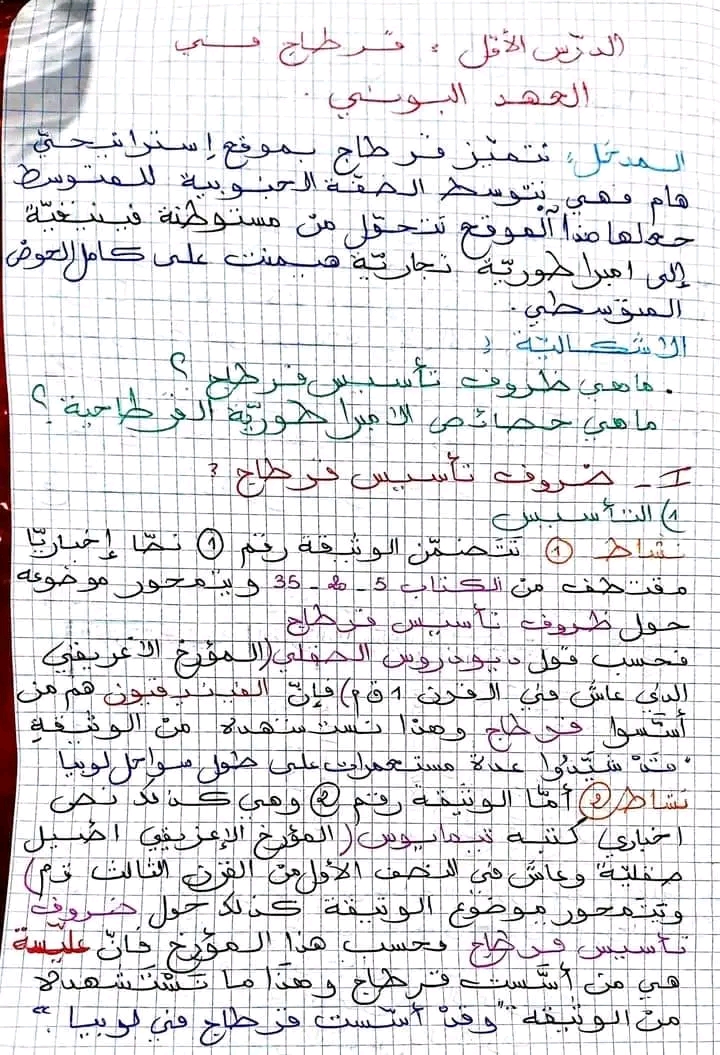 الدرس الأول : قرطاج في
العهد البوني.
المدخل: تتميز قرطاج بموقع إستراتيجي
هام فهي تتوسط الضفة الجنوبية للمتوسط
جعلها هذا الموقع تتحوّل من مستوطنة فينيقيّة
إلى امبراطوريّة تجاريّة هيمنت على كامل الحوض
المتوسطي.
الاشكاليّة :
. ماهي ظروف تأسيس قرطاج ؟
ماهي خصائص الامبراطوريّة القرطاجية ؟
I - ضروف تأسيس قرطاج ؟
1) التأسيس
نشاط 1 تتضمّن الوثيقة رقم 1 نصّا إخباريّا
مقتطف من الكتاب 5 - 20 - 35 ويتمحور موضوعه
حول ظروف تأسيس قرطاج
فحسب قول ديودروس الصقلي (المؤرخ الاغريقي
الذي عاش في القرن 1 ق م) فإنّ الفينيقيون هم من
أسّسوا قرطاج وهذا نستشهده من الوثيقة
"قد شيّدوا عدة مستعمرات على طول سواحل لوبيا
نشاط 2 أمّا الوثيقة رقم 2 وهي كذلك نص
اخباري كتبه تيمايوس (المؤرخ الإغريقي اصيل
صقلية وعاش في النصف الأول من القرن الثالث ق م)
ويتمحور موضوع الوثيقة كذلك حول ضروف
تأسيس قرطاج فحسب هذا المؤرخ فانّ عليسة
هي من أسّست قرطاج وهذا ما نستشهده
من الوثيقة "وقد أسّست قرطاج في لوبيا"